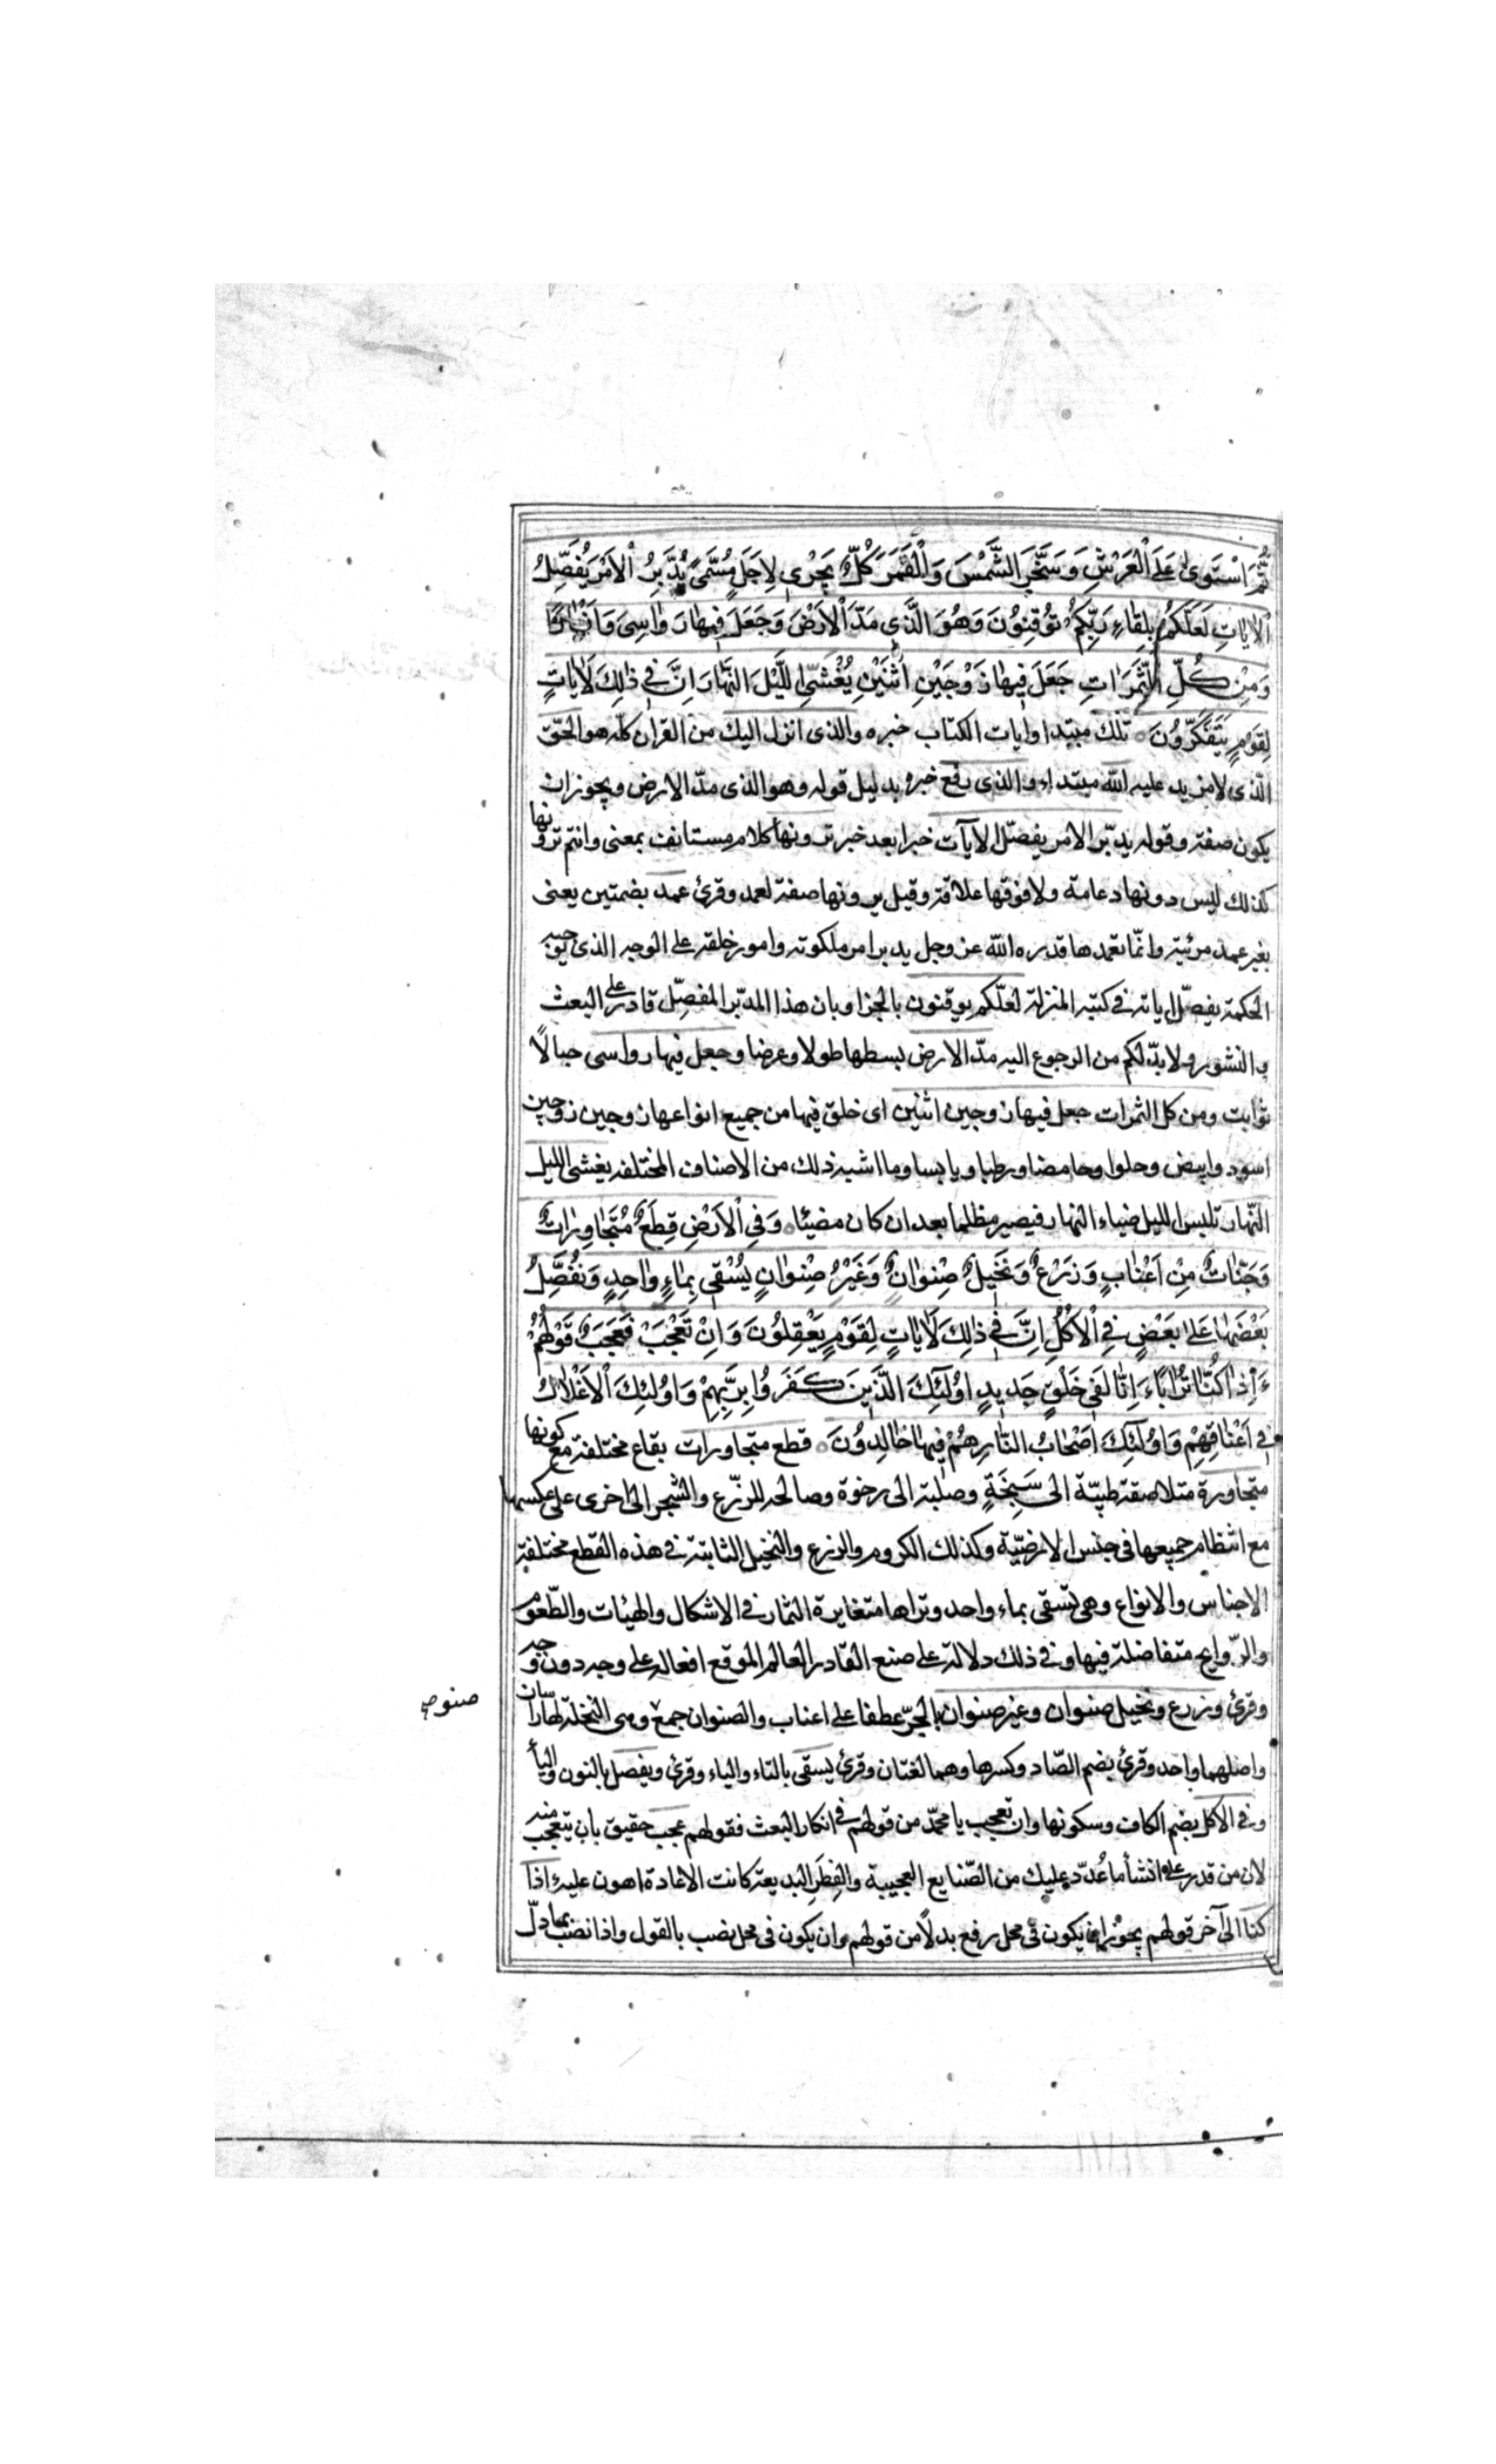 ثُمَّ اسْتَوىٰ عَلَى الْعَرْشِ وَسَخَّرَ الشَّمْسَ وَالْقَمَرَ كُلٌّ يَجْرِي لِاَجَلٍ مُسَمّىً يُدَبِّرُ الْاَمْرَ يُفَصِّلُ
الْاٰيٰاتِ لَعَلَّكُمْ بِلِقٰاءِ رَبِّكُمْ تُوقِنُونَ وَهُوَ الَّذِي مَدَّ الْاَرْضَ وَجَعَلَ فِيهٰا رَوٰاسِيَ وَاَنْهٰارًا
وَمِنْ كُلِّ الثَّمَرٰاتِ جَعَلَ فِيهٰا زَوْجَيْنِ اثْنَيْنِ يُغْشِي اللَّيْلَ النَّهٰارَ اِنَّ فِي ذٰلِكَ لَاٰيٰاتٍ
لِقَوْمٍ يَتَفَكَّرُونَ تلك مبتدا وايات الكتاب خبره والذى انزل اليك من القران كله هو الحق
الذى لا مزيد عليه الله مبتداء والذى رفع خبره بدليل قوله وهو الذى مدّ الارض ويجوز ان
يكون صفة وقوله يدبّر الامر يفصّل الايات خبرا بعد خبر ترونها كلام مستانف بمعنى وانتم ترونها
كذلك ليس دونها دعامة ولا فوقها علاقة وقيل ترونها صفة لعمد وقرئ عمد بضمتين يعنى
بغير عمد مرئية وانّما تعمدها قدره الله عز وجل يدبر امر ملكوته وامور خلقه على الوجه الذى توجبه
الحكمة يفصّل اياته فى كتبه المنزلة لعلّكم توقنون بالجزا وبان هذا المدبّر المفصّل قادر على البعث
والنشور ولا بدّ لكم من الرجوع اليه مدّ الارض بسطها طولا وعرضا وجعل فيها رواسى جبالًا
ثوابت ومن كل الثمرات جعل فيها زوجين اثنين اى خلق فيها من جميع انواعها زوجين زوجين
اسود وابيض وحلوا وحامضا ورطبا ويابسا وما اشبه ذلك من الاصناف المختلفه يغشى الليل
النّهار تلبس الليل ضياء النهار فيصير مظلما بعد ان كان مضيئا وَفِي الْاَرْضِ قِطَعٌ مُتَجٰاوِرٰاتٌ
وَجَنّٰاتٌ مِنْ اَعْنٰابٍ وَزَرْعٌ وَنَخِيلٌ صِنْوٰانٌ وَغَيْرُ صِنْوٰانٍ يُسْقىٰ بِمٰاءٍ وٰاحِدٍ وَنُفَضِّلُ
بَعْضَهٰا عَلىٰ بَعْضٍ فِي الْاُكُلِ اِنَّ فِي ذٰلِكَ لَاٰيٰاتٍ لِقَوْمٍ يَعْقِلُونَ وَاِنْ تَعْجَبْ فَعَجَبٌ قَوْلُهُمْ
ءَاِذٰا كُنّٰا تُرٰابًا ءَاِنّٰا لَفِي خَلْقٍ جَدِيدٍ اُولٰئِكَ الَّذِينَ كَفَرُوا بِرَبِّهِمْ وَاُولٰئِكَ الْاَغْلٰالُ
فِي اَعْنٰاقِهِمْ وَاُولٰئِكَ اَصْحٰابُ النّٰارِ هُمْ فِيهٰا خٰالِدُونَ قطع متجاورات بقاع مختلفة مع كونها
متجاورة متلاصقة طيّبة الى سَبِخَةٍ وصلبة الى رخوة وصالحه للزّرع والشجر الى اخرى على عكسها
مع انتظام جميعها فى جنس الارضيّة وكذلك الكروم والزرع والنخيل الثابتة فى هذه القطع مختلفة
الاجناس والانواع وهى تسقى بماء واحد وتراها متغايرة الثمار فى الاشكال والهيئات والطّعوم
والرّوايح متفاضلة فيها وفى ذلك دلالة على صنع القادر العالم الموقع افعاله على وجه دون وجه
وقرئ وزرع ونخيل صنوان وغير صنوان بالجرّ عطفا على اعناب والصنوان جمع وهى النخلة لها راسان
صنو
واصلهما واحد وقرئ بضم الصّاد وكسرها وهما لغتان وقرئ يسقى بالتاء والياء وقرئ ونفضل بالنون والياء
وفى الاكل بضم الكاف وسكونها وان تعجب يا محمّد من قولهم فى انكار البعث فقولهم عجب حقيق بان يتعجب منه
لان من قدر على انشأ ما عُدّد عليك من الصّنايع العجيبة والفِطَرِ البديعة كانت الاعادة اهون عليه ءاذا
كنّا الى آخر قولهم يجوز ان يكون فى محل رفع بدلًا من قولهم وان يكون فى محل نصب بالقول واذا نصب بما دلّ